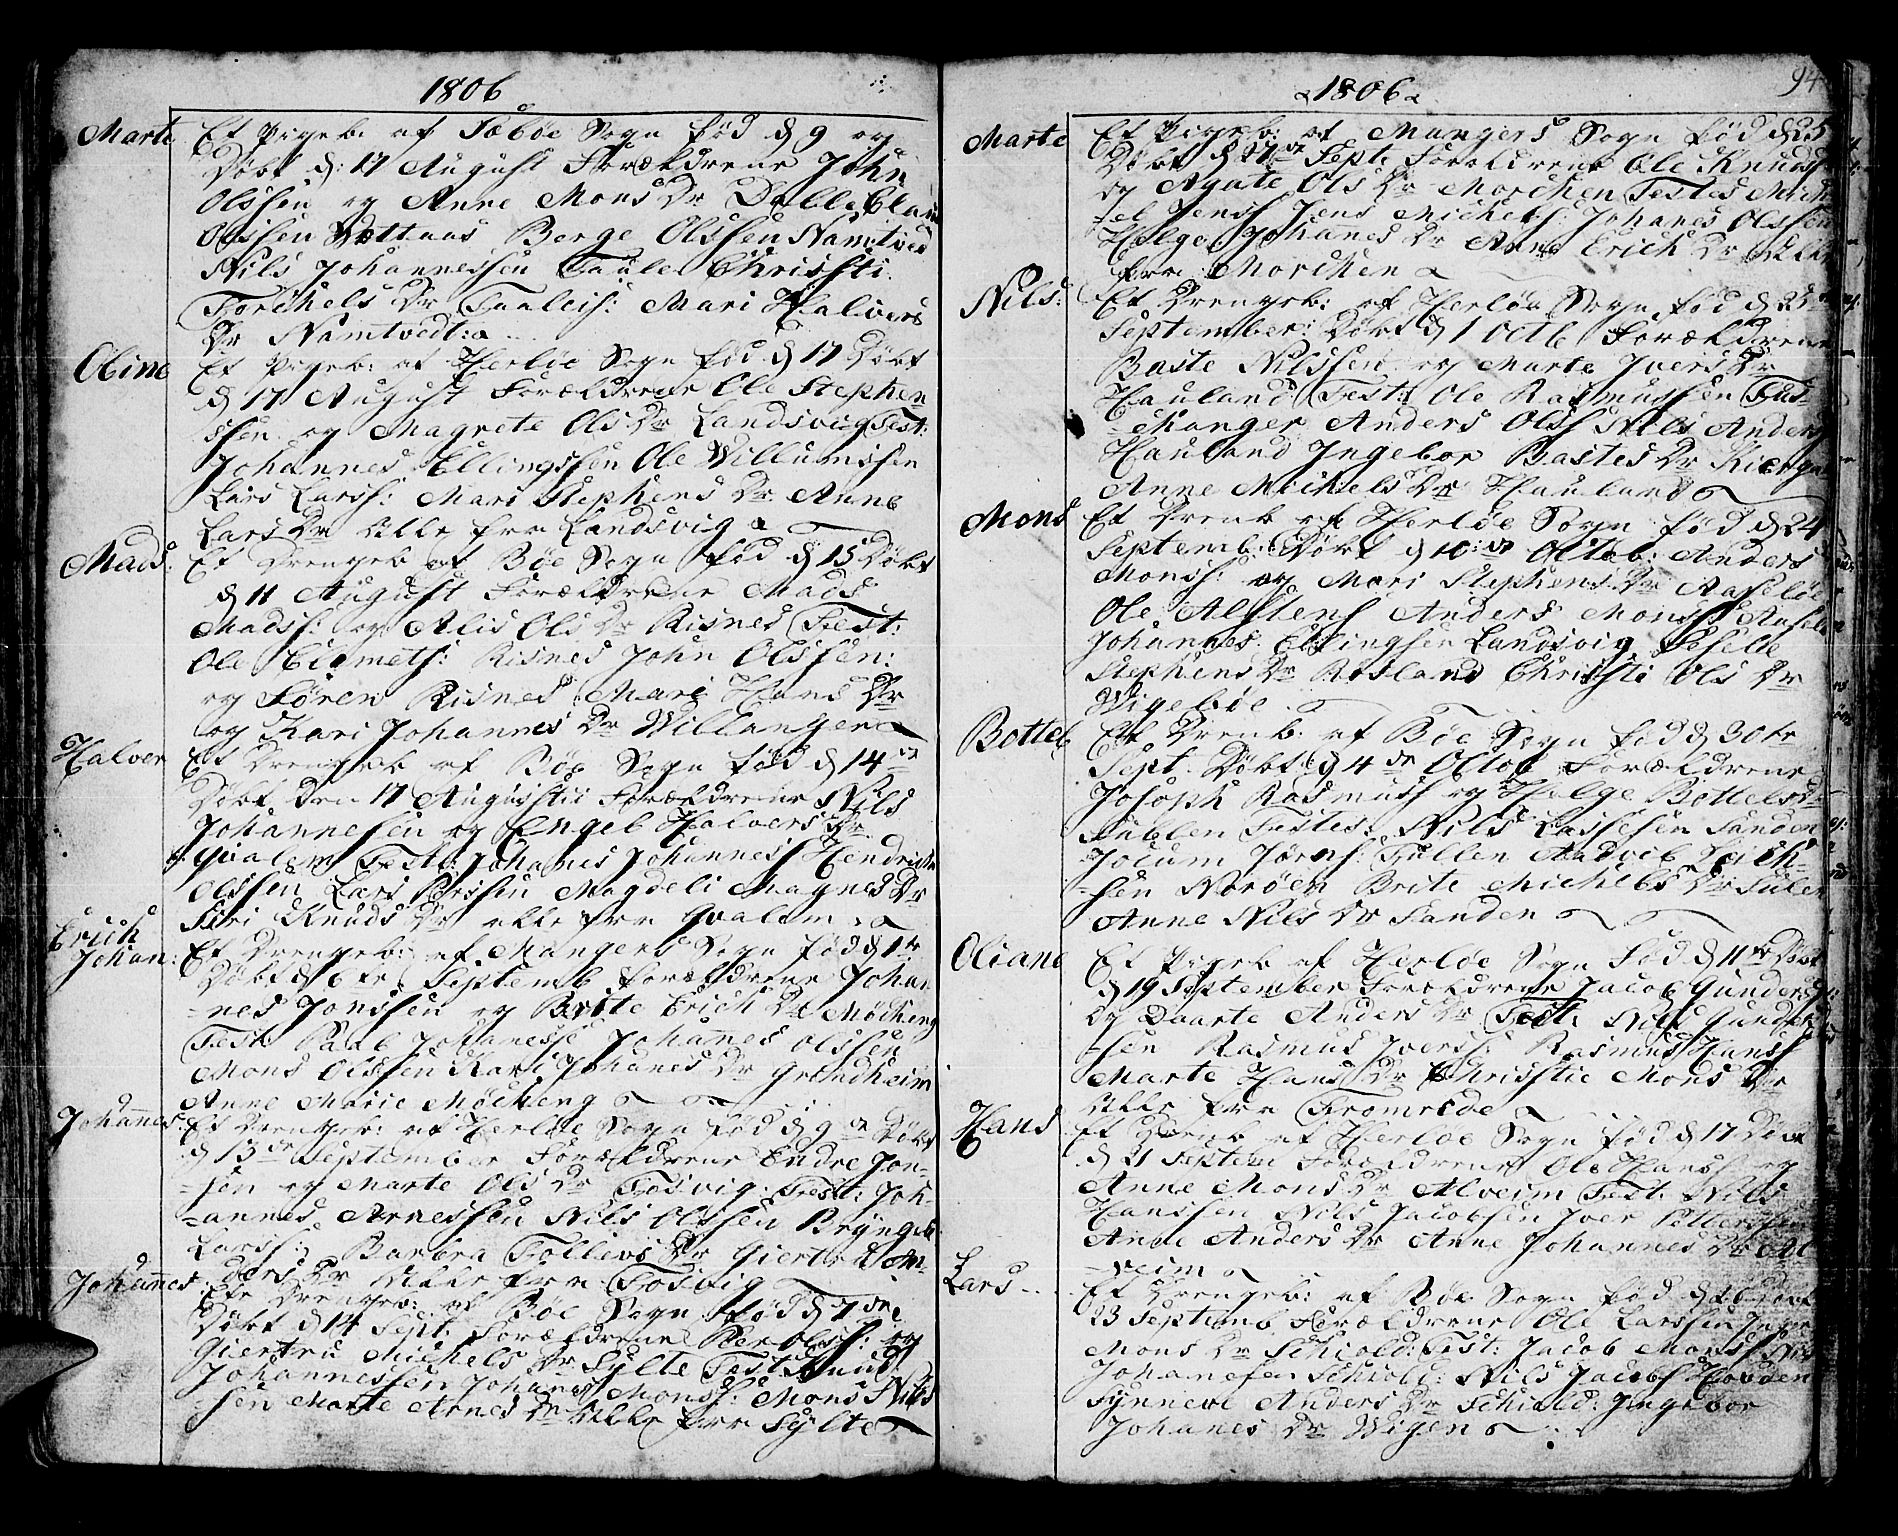 1806
Marte Et Pigeb: af Sæbøe Sogn fød d 9 og
Døbt d: 17 August Forældrene John
Olssen og Anne Mons Dr Dalle
Olssen Berge Olssen Namtved
Nils Johannessen Christi
Torchels Dr Mari Halvors
Dr Namtvedt:
Oline Et Pigeb: af Herløe Sogn fød d 17 Døbt
d 17 August Forældrene Ole Stephen
ssen og Magrete Ols Dr Landsvig Test:
Johannes Ellingssen Ole Willumssen
Lars Larss: Mari Stephens Dr Anne
Lars Dr alle fra Landsvig
Mads: Et Drengeb af Bøe Sogn fød d 15 Døbt
d 11 August Forældrene Mads
Madss: og Alis Ols Dr Risnes Test:
Ole Risnes John Olssen:
og Søren Risnes Mari Hans Dr
og Kari Johannes Dr Willanger
Halver Et Drengeb af Bøe Sogn fød d 14 de
Døbt den 17 Augustii Forældrene Nils
Johannesen og Engel Halvers Dr
Qvalem Test: Johanes Johanness Hendrich
Olssen Lars Magdeli Magnes Dr
Siri Knuds Dr alle fra Qvalem
Erich
Johan: Et Drengeb: af Mangers Sogn fød d 1 te
Døbt d 6 te Septemb Forældrene Johan
=nes Jonssen og Brite Erich Dr Møching
Test: Paal Johanesse Johannes Olssen
Mons Olssen Kari Johanes Dr Grondheim
Anne Marie Møcheng
Johannes: Et Drengeb: af Herløe Sogn fød d 9 de Døbt
d 13 de September Forældrene Endre Jon=
=sen og Marte Ols Dr Fosvig: Test: Joh=
=annes Arnessen Nils Olssen Brÿngel
Larss: Barbra Dr Giertru
ders Dr alle fra Fosvig
Johannes: Ete Drengeb: af Bøe Sogn fød d 7 de
Døbt d 14 Sept: Forældrene Per Olss: og
Giertru Michels Dr Sylte Test Knud
Johannessen Johanes Monss: Mons Nils
=sen Marte Arnes Dr alle fra Sylte
1806
94
Marte Et Pigeb: af Mangers Sogn fød d 25
Døbt d 27 de Sept: Forældrene Ole Knuds
og Agate Ols Dr Morchen Testes Mich
=el Jenss Jens Michels: Johanes Olssen
Helge Johanes Dr Anne Erich Dr alle
fra Morchen
Nils: Et Drengeb: af Herløe Sogn fød d 25
September: Døbt d 1 Octb Forældrene
Baste Nilssen og Marte Ivers Dr
Hauland Test: Ole Rasmussen Fus=
=Manger Anders Olss Nils Anders
Hauland Ingebor Bastes Dr
Anne Michels Dr Hauland
Mons Et Drenb af Herløe Sogn fød d 24
Septemb: Døbt d 10: de Octob: Anders
Monss: og Mari Stephens Dr
Ole Anders Monss
Johannes Ellingsen Landsvig
Stephens Dr Rosland Christi Ols Dr
Wigebøe
Bottel Et Drenb: af Bøe Sogn fød d 30 te
Sept. Døbt d 4 de Octob Forældrene
Josoph Rasmuss og Helge Bottels
Test: Nils Lassesen Sanden
Jocum Jørns:
=sen Norøen Brite Michels Dr
Anne Nils Dr Sanden
Oliane Et Pigeb af Herløe Sogn Fød d 11 te Døbt
d 19 September Forældrene Jacob Gunders
og Daarte Anders Dr Test: Nils Gunder
=sen Rasmus Iverss: Rasmus Hanss
Marte Hans Dr Christie Mons Dr
alle fra Fromreide
Hans Et Drenb af Herløe Sogn fød d 17 Døbt
d 21 Septem Forældrene Ole Hanss og
Anne Mons Dr Alveim Test: Nils
Hanssen Nils Jacobsen Iver Pettersen
Anne Anders Dr Anne Johannes Dr Al
=veim
Lars Et Drengeb: af Bøe Sogn fød d 16 Døbt
23 Septemb Forældrene Ole Larssen
Mons Dr Schiold: Test: Jacob Monss
Johanesen Schiold: Nils Jacobs Hopden
Synneve Anders Dr Schiold: Ingebor
Johanes Dr Wigen